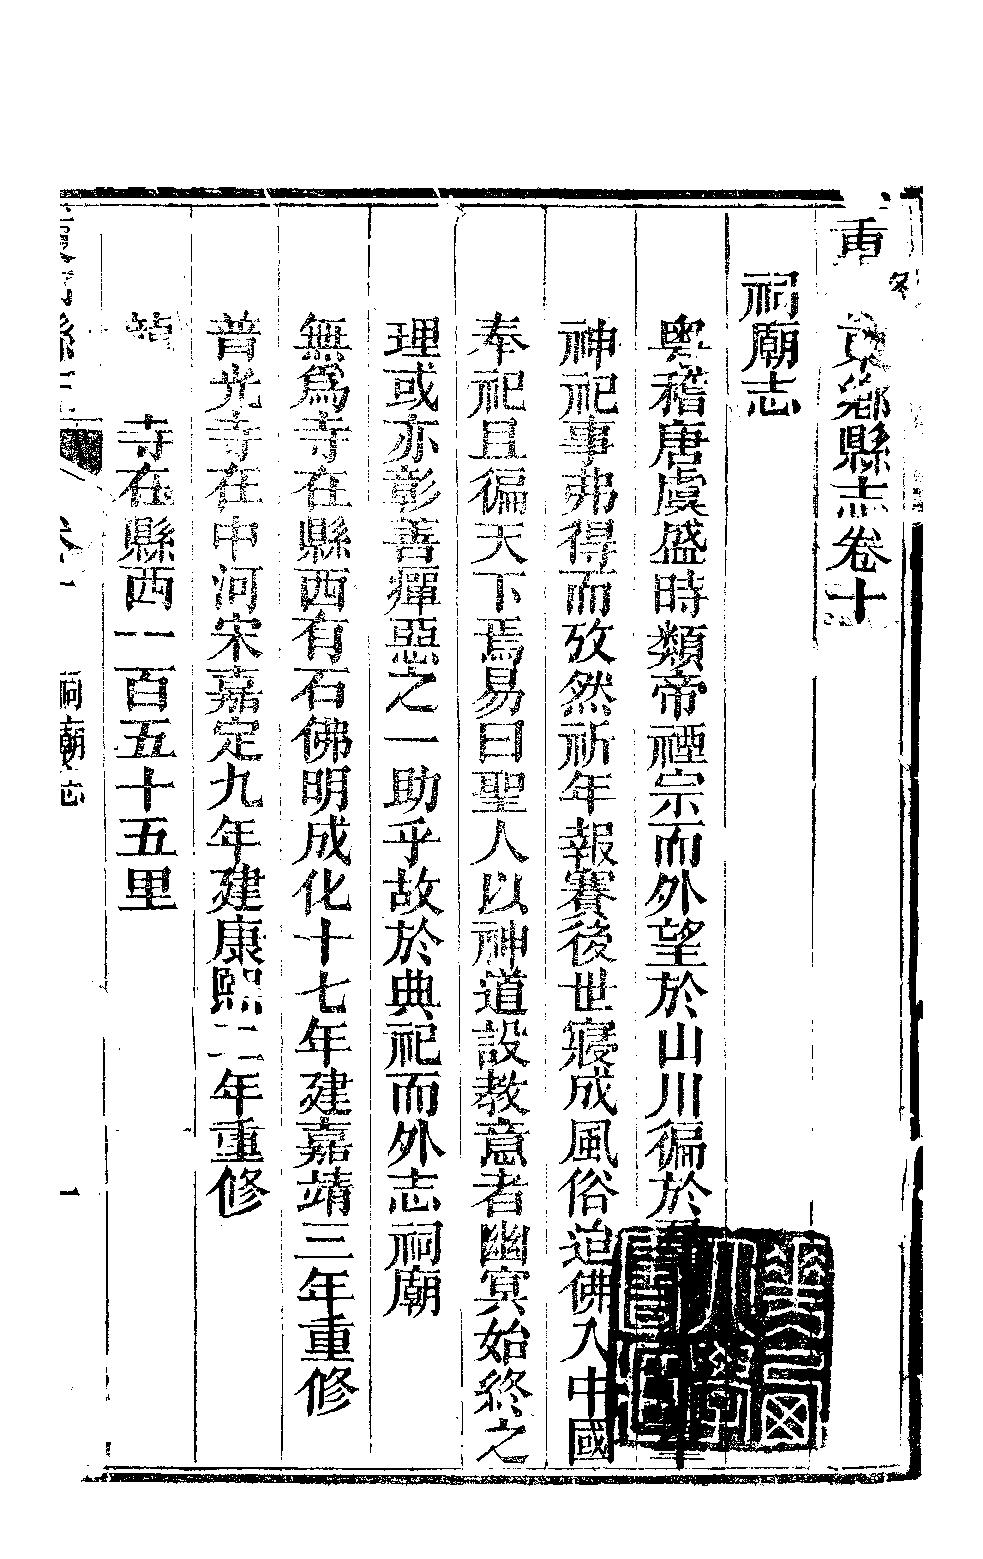 重修東鄉縣志卷十
祠廟志
粵稽唐虞盛時類帝禋宗而外望於山川徧於羣
神祀事弗得而攷然祈年報賽後世寖成風俗迨佛入中國
奉祀且徧天下焉易曰聖人以神道設教意者幽冥始終之
理或亦彰善癉惡之一助乎故於典祀而外志祠廟
無爲寺在縣西有石佛明成化十七年建嘉靖三年重修
普光寺在中河宋嘉定九年建康熙二年重修
寺在縣西一百五十五里
祠廟志 一